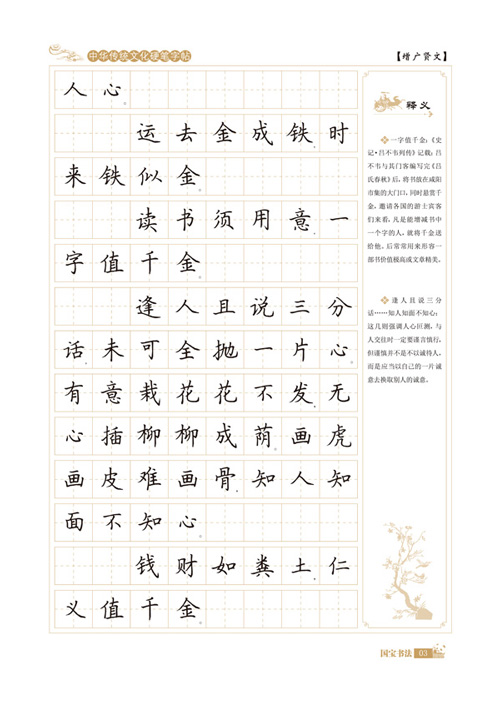 中华传统文化硬笔字帖
【增广贤文】
人心。
运去金成铁，时
来铁似金。
读书须用意，一
字值千金。
逢人且说三分
话，未可全抛一片心。
有意栽花花不发，无
心插柳柳成荫。画虎
画皮难画骨，知人知
面不知心。
钱财如粪土，仁
义值千金。
释义
一字值千金：《史
记·吕不韦列传》记载：吕
不韦与其门客编写完《吕
氏春秋》后，将书放在咸阳
市集的大门口，同时悬赏千
金，邀请各国的游士宾客
们来看，凡是能增减书中
一个字的人，就将千金送
给他。后常用来形容一
部书价值极高或文章精美。
逢人且说三分
话……知人知面不知心：
这几则强调人心叵测，与
人交往时一定要谨言慎行，
但谨慎并不是不以诚待人，
而是应当以自己的一片诚
意去换取别人的诚意。
国宝书法 03